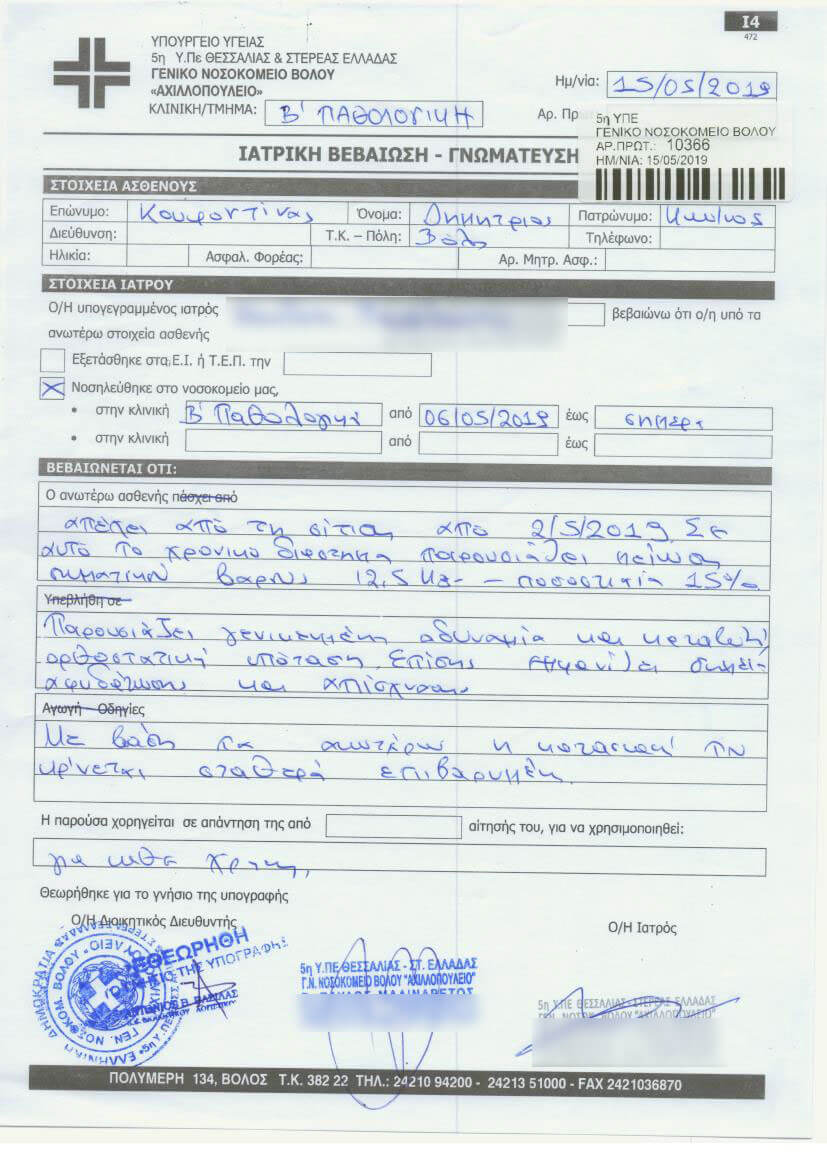 I4
472
ΥΠΟΥΡΓΕΙΟ ΥΓΕΙΑΣ
5η Υ.Πε ΘΕΣΣΑΛΙΑΣ & ΣΤΕΡΕΑΣ ΕΛΛΑΔΑΣ
ΓΕΝΙΚΟ ΝΟΣΟΚΟΜΕΙΟ ΒΟΛΟΥ
«ΑΧΙΛΛΟΠΟΥΛΕΙΟ»
ΚΛΙΝΙΚΗ/ΤΜΗΜΑ: Β' ΠΑΘΟΛΟΓΙΚΗ
Ημ/νία: 15/05/2019
Αρ. Πρωτ
5η ΥΠΕ
ΓΕΝΙΚΟ ΝΟΣΟΚΟΜΕΙΟ ΒΟΛΟΥ
ΑΡ.ΠΡΩΤ.: 10366
ΗΜ/ΝΙΑ: 15/05/2019
ΙΑΤΡΙΚΗ ΒΕΒΑΙΩΣΗ - ΓΝΩΜΑΤΕΥΣΗ
ΣΤΟΙΧΕΙΑ ΑΣΘΕΝΟΥΣ
Επώνυμο: Κουφοντίνας Όνομα: Δημήτριος Πατρώνυμο:
Διεύθυνση: Τ.Κ. – Πόλη: Βόλος Τηλέφωνο:
Ηλικία: Ασφαλ. Φορέας: Αρ. Μητρ. Ασφ.:
ΣΤΟΙΧΕΙΑ ΙΑΤΡΟΥ
Ο/Η υπογεγραμμένος ιατρός βεβαιώνω ότι ο/η υπό τα
ανωτέρω στοιχεία ασθενής
Εξετάσθηκε στα Ε.Ι. ή Τ.Ε.Π. την
Νοσηλεύθηκε στο νοσοκομείο μας,
• στην κλινική Β' Παθολογική από 06/05/2019 έως σήμερα
• στην κλινική από έως
ΒΕΒΑΙΩΝΕΤΑΙ ΟΤΙ:
Ο ανωτέρω ασθενής πάσχει από
απέχει από τη σίτιση από 2/5/2019. Σε
αυτό το χρονικό διάστημα παρουσιάζει μείωση
σωματικού βάρους 12,5 kg - ποσοστιαία 15%
Υπεβλήθη σε
Παρουσιάζει γενικευμένη αδυναμία και καταβολή
ορθοστατική υπόταση. Επίσης εμφανίζει σημεία
αφυδάτωσης και απίσχνασης
Αγωγή – Οδηγίες
Με βάση τα ανωτέρω η κατάσταση του
κρίνεται σταθερά επιβαρυμένη.
Η παρούσα χορηγείται σε απάντηση της από αίτησής του, για να χρησιμοποιηθεί:
για κάθε χρήση
Θεωρήθηκε για το γνήσιο της υπογραφής
Ο/Η Διοικητικός Διευθυντής
Ο/Η Ιατρός
ΕΘΕΩΡΗΘΗ
ΤΗΣ ΥΠΟΓΡΑΦΗΣ
5η Υ.ΠΕ ΘΕΣΣΑΛΙΑΣ - ΣΤ. ΕΛΛΑΔΑΣ
Γ.Ν. ΝΟΣΟΚΟΜΕΙΟ ΒΟΛΟΥ "ΑΧΙΛΛΟΠΟΥΛΕΙΟ"
5η Υ.ΠΕ ΘΕΣΣΑΛΙΑΣ - ΣΤΕΡΕΑΣ ΕΛΛΑΔΑΣ
ΓΕΝ. ΝΟΣΟΚ. ΒΟΛΟΥ "ΑΧΙΛΛΟΠΟΥΛΕΙΟ"
ΠΟΛΥΜΕΡΗ 134, ΒΟΛΟΣ Τ.Κ. 382 22 ΤΗΛ.: 24210 94200 - 24213 51000 - FAX 2421036870